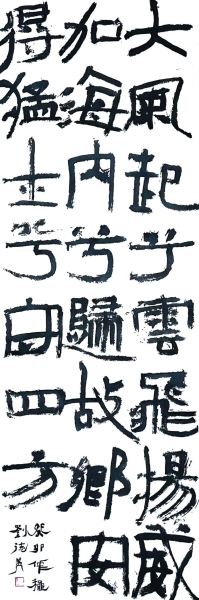 大風起兮雲飛揚威
加海内兮歸故鄉安
得猛士兮守四方
癸卯